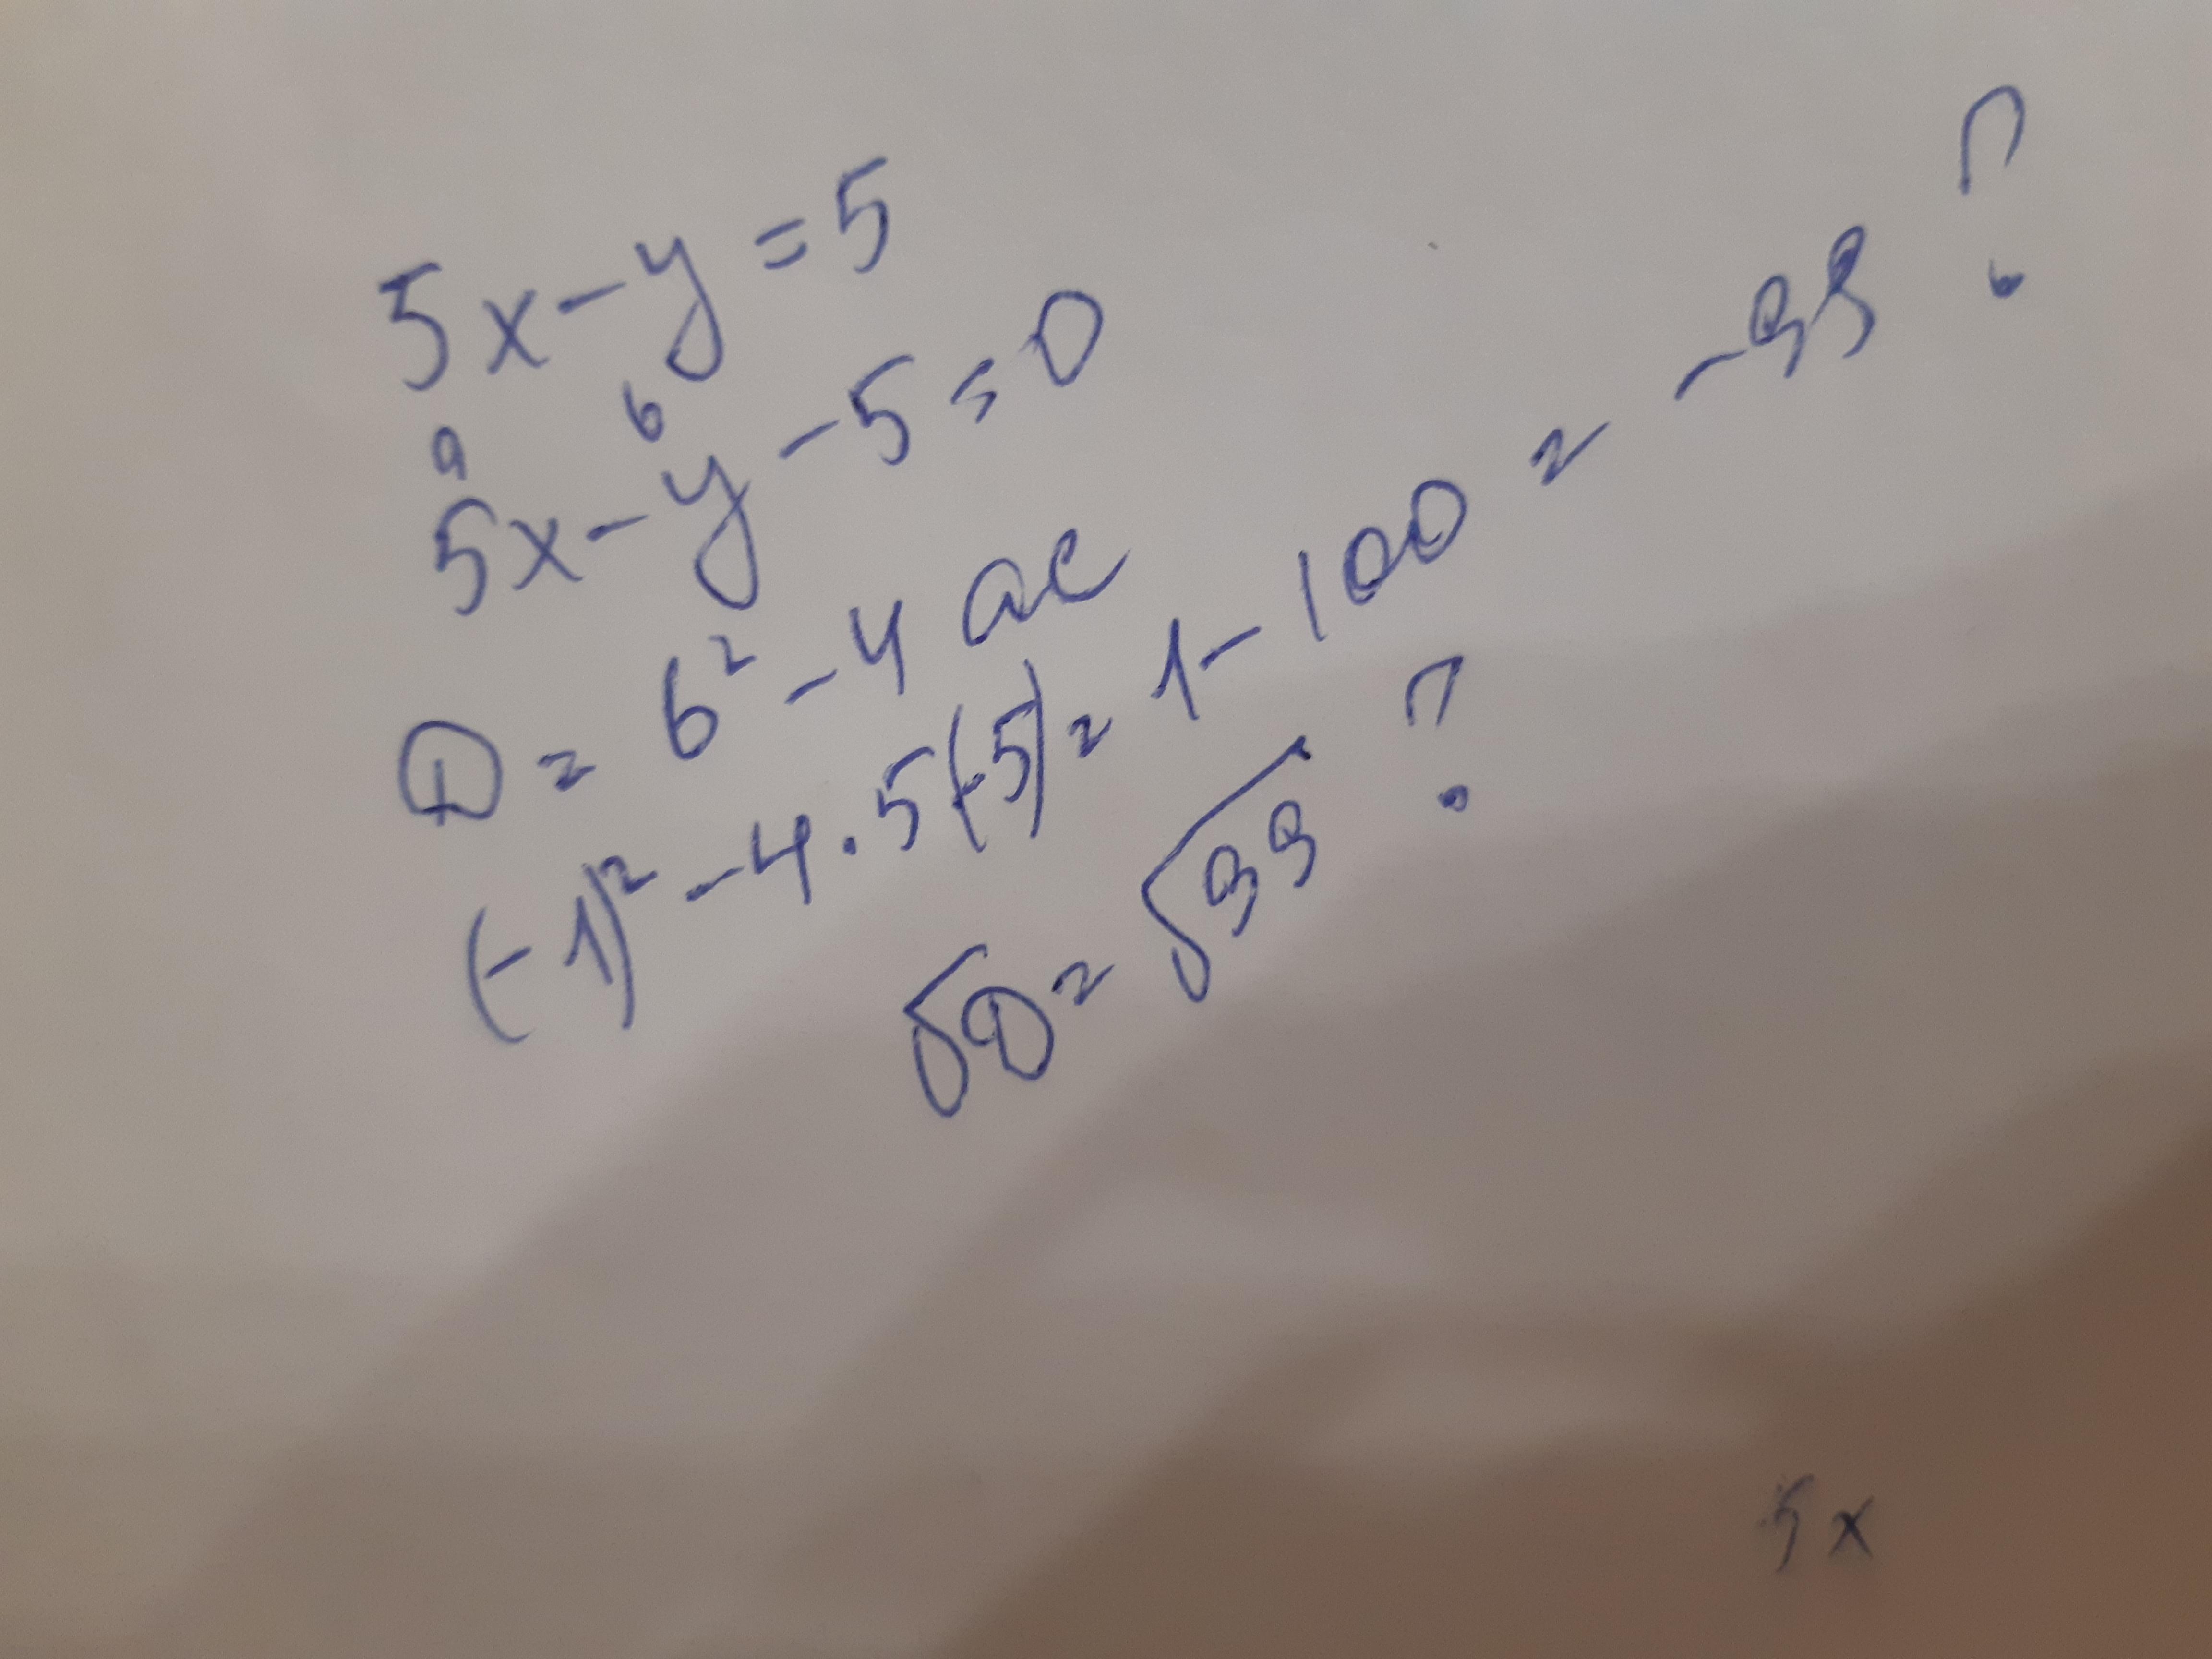 5x-y=5
a b
5x-y-5=0
D=b²-4ac
(-1)²-4·5(-5)=1-100=-99?
√D=√99?
5x